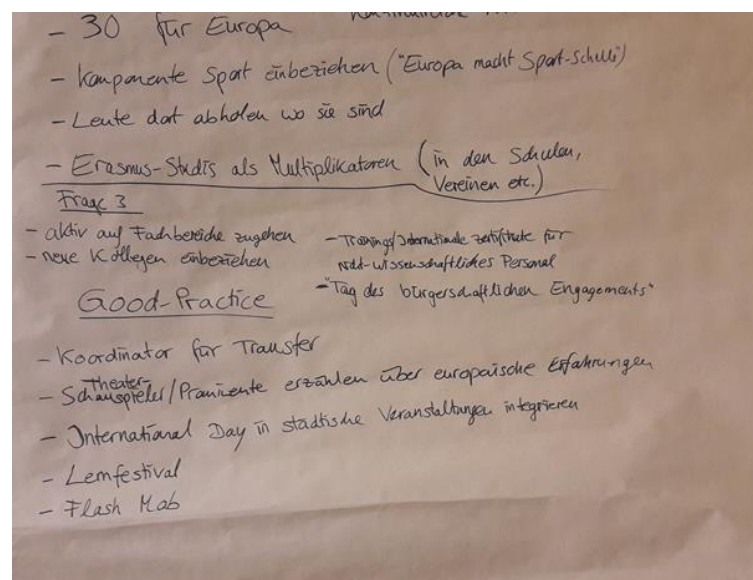 - 30 für Europa
- Komponente Sport einbeziehen ("Europa macht Sport-Schule")
- Leute dort abholen wo sie sind
- Erasmus-Studis als Multiplikatoren (in den Schulen,
Vereinen etc.)
Frage 3
- aktiv auf Fachbereiche zugehen
- neue Kollegen einbeziehen
- Trainings/Internationale Zertifikate für
nicht-wissenschaftliches Personal
- "Tag des bürgerschaftlichen Engagements"
Good-Practice
- Koordinator für Transfer
Theater-
- Schauspieler/Prominente erzählen über europäische Erfahrungen
- International Day in städtische Veranstaltungen integrieren
- Lernfestival
- Flash Mob